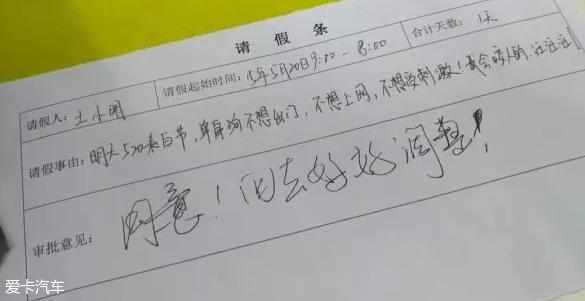 请假条
请假人：土小周 请假起始时间：15年5月20日9:00-8:00 合计天数：1天
请假事由：明天520表白节，单身狗不想出门，不想上网，不想受刺激！我会疯的，汪汪汪！
审批意见：同意！回去好好调整！
爱卡汽车